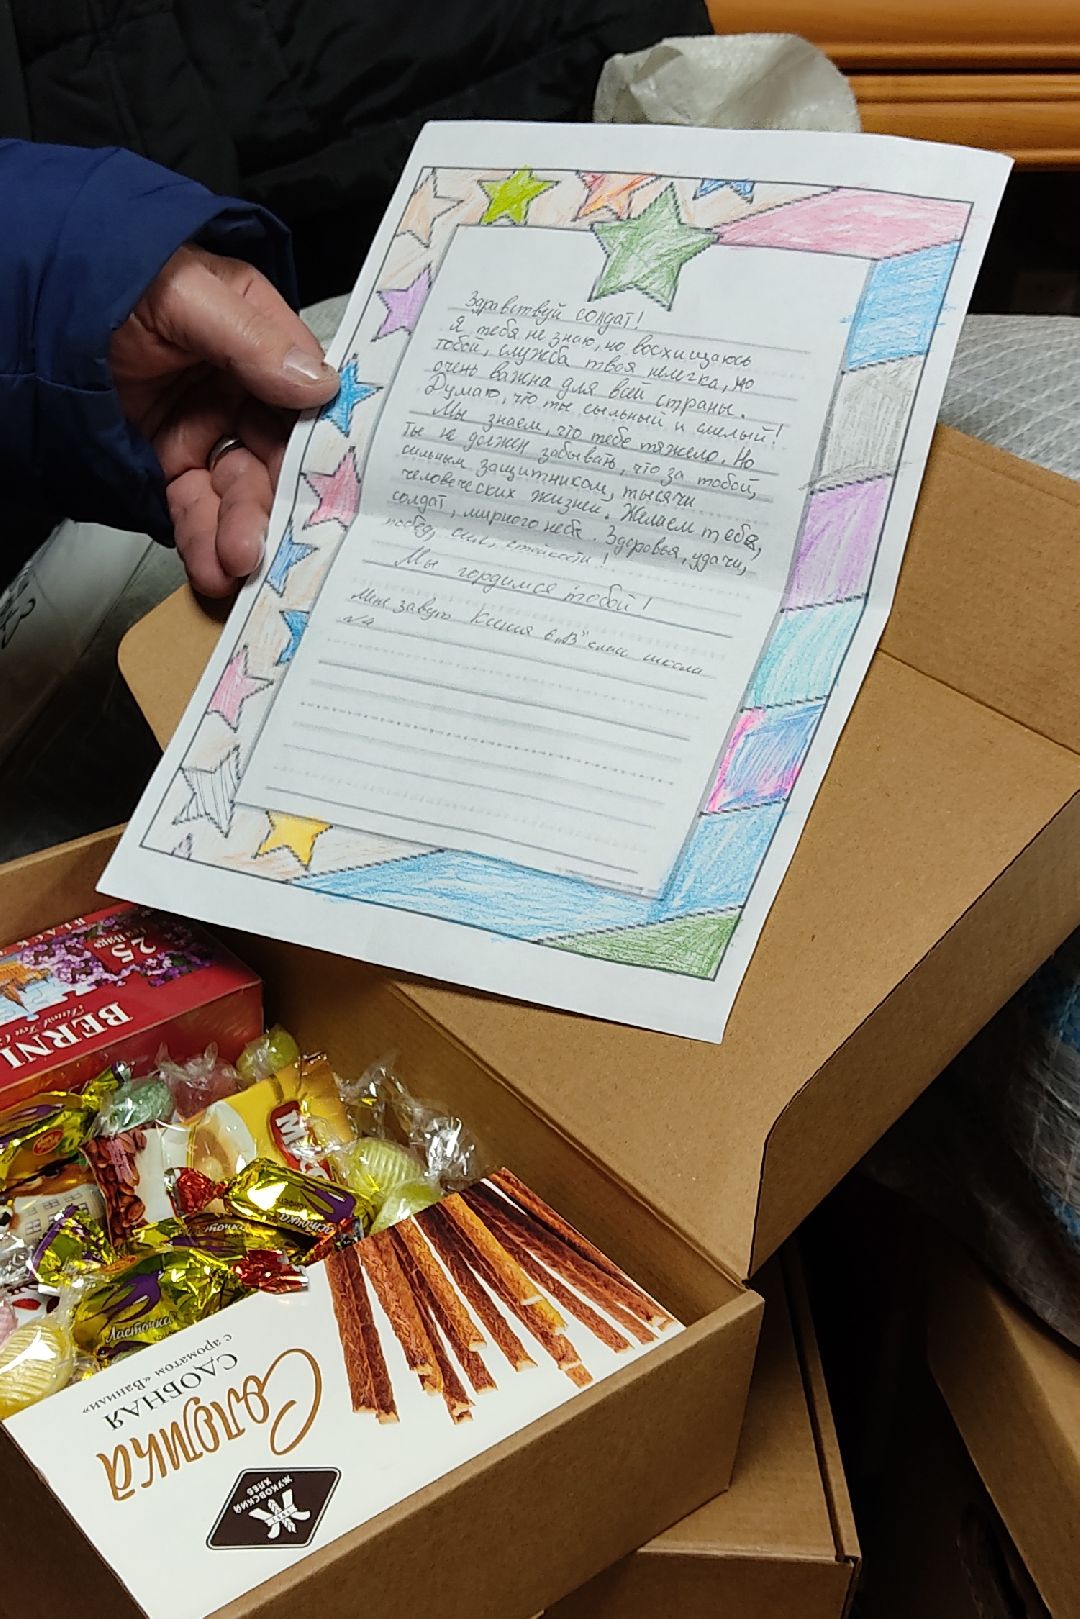 Здравствуй солдат!
Я тебя не знаю, но восхищаюсь
тобой, служба твоя нелегка, но
очень важна для всей страны.
Думаю, что ты сыльный и смелый!
Мы знаем, что тебе тяжело. Но
ты не должен забывать, что за тобой,
сильным защитником, тысячи
человеческих жизней. Желаем тебе,
солдат, мирного неба. Здоровья, удачи,
побед, сил, стойкости!
Мы гордимся тобой!
Меня завут Ксения 6 "В" школа
№4
25
Tea Bags
BLACK
BERNI
Ласточка
Соломка
СДОБНАЯ
с ароматом «Ванили»
Ж
ЖУКОВСКИЙ
ХЛЕБ